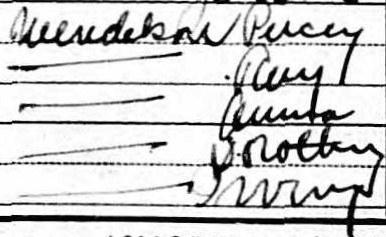 Mendelson Percey
— Ray
— Anna
— Dorothy
— Irving